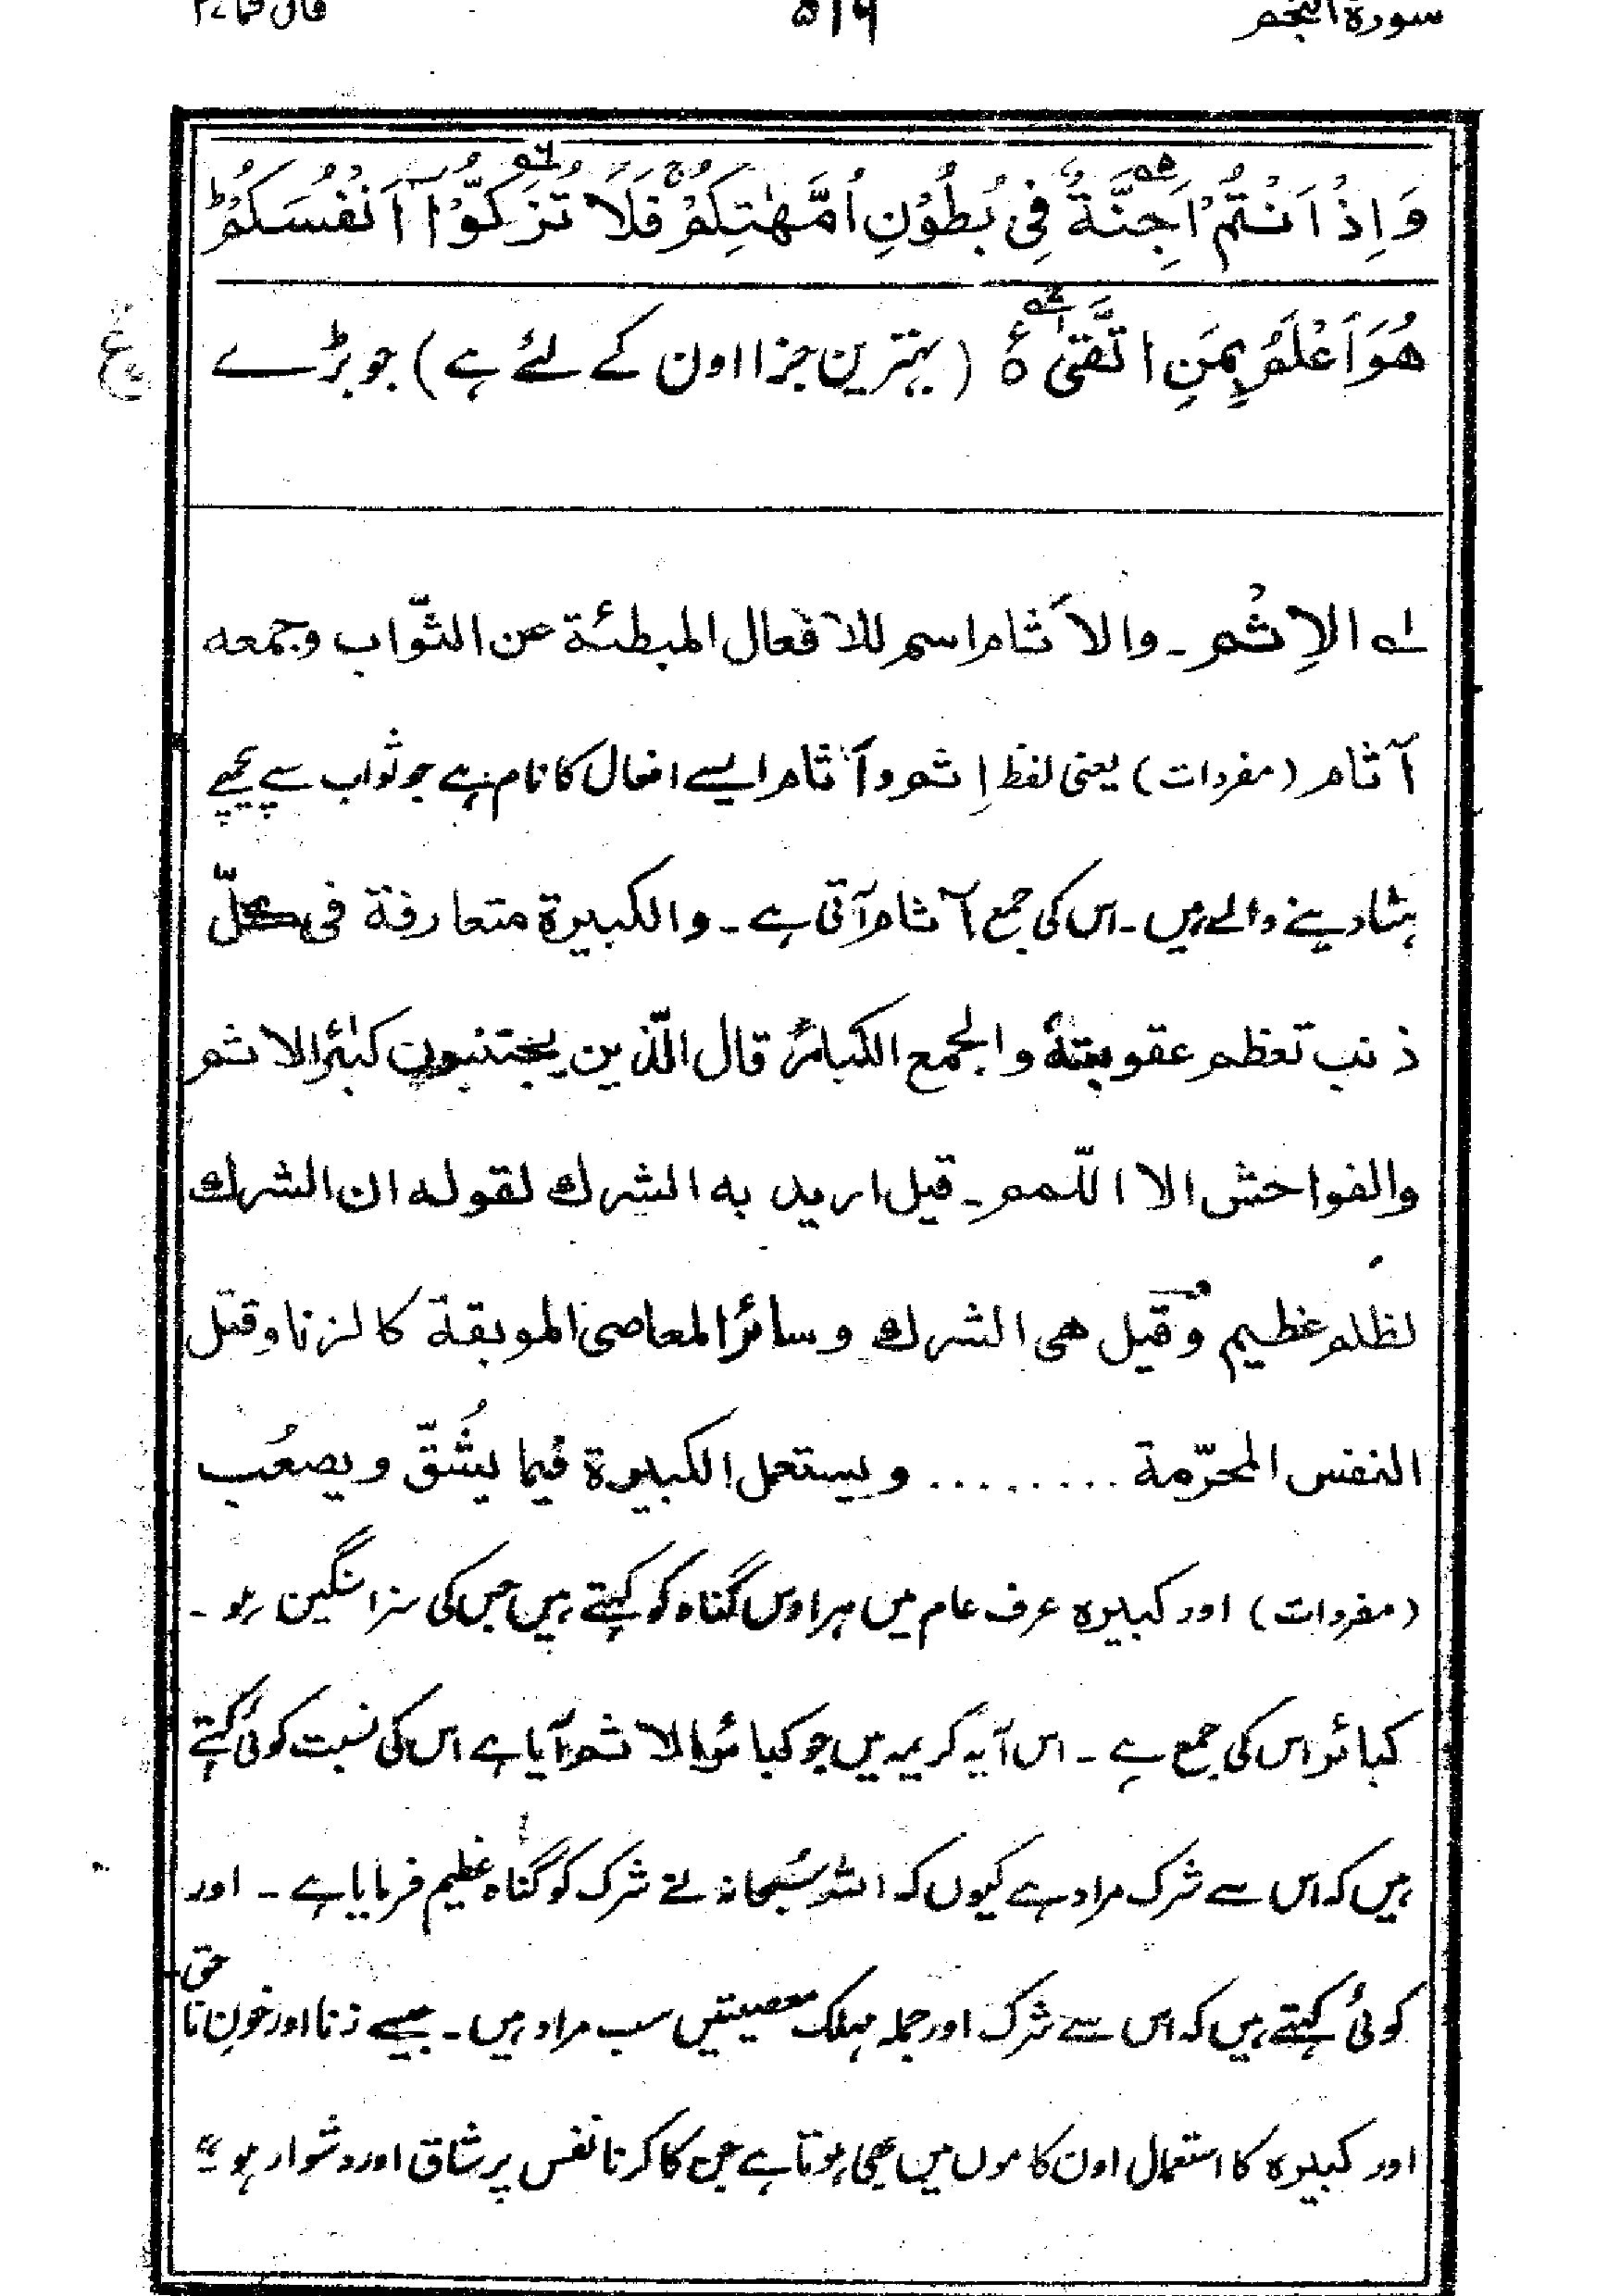 سورۃ النجم ۵۱۹ قال فما ۲۷
وَاِذْ اَنْتُمْ اَجِنَّةٌ فِیْ بُطُوْنِ اُمَّهٰتِكُمْ ۚ فَلَا تُزَكُّوْۤا اَنْفُسَكُمْ ؕ
هُوَ اَعْلَمُ بِمَنِ اتَّقٰی ۠ (بہترین جزا اون کے لئے ہے) جو بڑے
لہ الاِثْم۔ والاَثام اسم للافعال المبطئة عن الثّواب وجمعه
آثام (مفردات) یعنی لفظ اِثم و اَثام ایسے افعال کا نام ہے جو ثواب سے پیچھے
ہٹا دینے والے ہیں۔ اس کی جمع آثام آتی ہے۔ والکبیرة متعارفة فی کلّ
ذنب تعظم عقوبتهٗ والجمع الکبائرُ قال الّذین یجتنبون کبٰئر الاثم
والفواحش الا اللّمم۔ قیل ارید به الشرك لقوله ان الشرك
لظلم عظیم وقیل هی الشرك وسائر المعاصی الموبقة کالزنا وقتل
النفس المحرّمة ......... ویستعمل الکبیرة فیما یشُقّ ویصعُب
(مفردات) اور کبیرہ عرف عام میں ہر اوس گناہ کو کہتے ہیں جس کی سزا سنگین ہو۔
کبائر اس کی جمع ہے۔ اس آیہ کریمہ میں جو کبائر الاثم آیا ہے اس کی نسبت کوئی کہتے
ہیں کہ اس سے شرک مراد ہے کیوں کہ اللہ سُبحانہ نے شرک کو گناہ عظیم فرمایا ہے۔ اور
کوئی کہتے ہیں کہ اس سے شرک اور جملہ مہلک معصیتیں سب مراد ہیں۔ جیسے زنا اور خونِ ناحق
اور کبیرہ کا استعمال اون کاموں میں بھی ہوتا ہے جن کا کرنا نفس پر شاق اور دشوار ہو